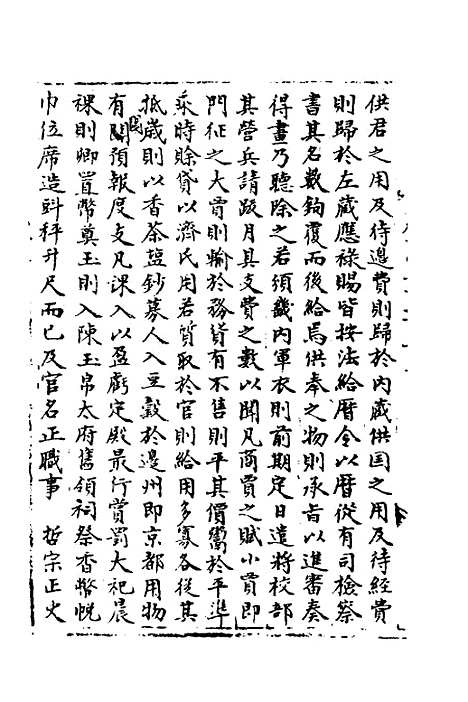 供君之用及待邊費則歸於内藏供国之用及待經費
則歸於左藏應祿賜皆按法給曆令以曆從有司檢察
書其名數鉤覆而後給焉供奉之物則承旨以進審奏
得畫乃聽除之若須畿内軍衣則前期定日遣將校部
其營兵請跋月具支費之數以聞凡商賈之賦小賈即
門征之大賈則輸於務貨有不售則平其價鬻於平準
乘時賒貸以濟民用若質取於官則給用多寡各從其
抵歲則以香茶塩鈔募人入豆穀於邊州即京都用物
有闕預報度支凡課入以盈虧定殿最行賞罰大祀晨
祼則卿置幣奠玉則入陳玉帛太府舊領祠祭香幣帨
巾位席造斟秤升尺而已及官名正職事　哲宗正史